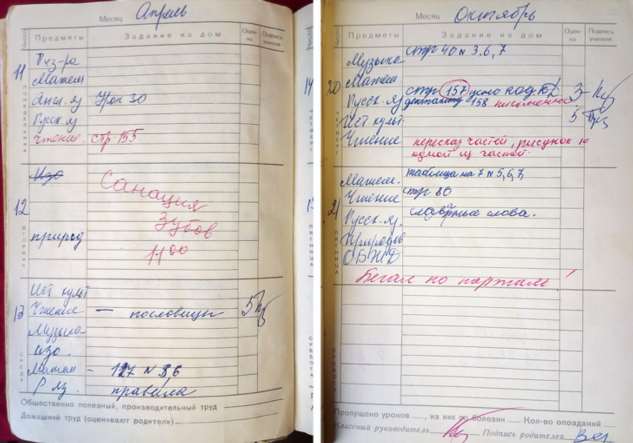 Месяц Апрель
Предметы Задание на дом Оцен-ка Подпись учителя
11 Физ-ра
Матем.
Англ. яз Урок 30
Русск. яз
Чтение стр 155
Изо
Санация
Зубов
12
природ 11 00
Ист культ
13 Чтение — пословицы 5
Музыка
изо.
матем - 127 N 86
Р яз. правила
Общественно полезный, производительный труд
Домашний труд (оценивают родители)
Месяц Октябрь
Предметы Задание на дом Оцен-ка Подпись учителя
Музыка стр 40 N 3, 6, 7
20 Матем
Русск. яз стр 157 3
158 письменно
Ист культ 5
Чтение пересказ частей, рисунок к
одной из частей.
Матем. таблица на 7 N 5, 6, 7,
Чтение стр 80
21 Русск. яз. словарные слова.
Природов
ОБЖ
Бегал по партам!
Пропущено уроков, из них по болезни Кол-во опозданий
Классный руководитель Подпись родителей